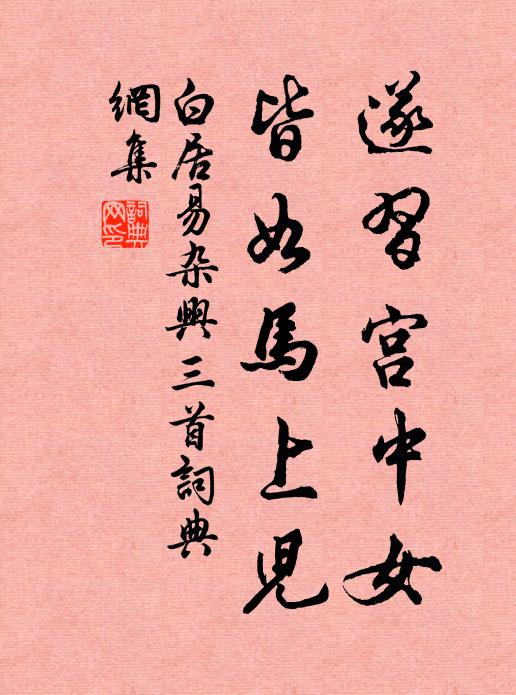 遂習宮中女
皆如馬上兒
白居易杂興三首詞典
網集
詞典
网印